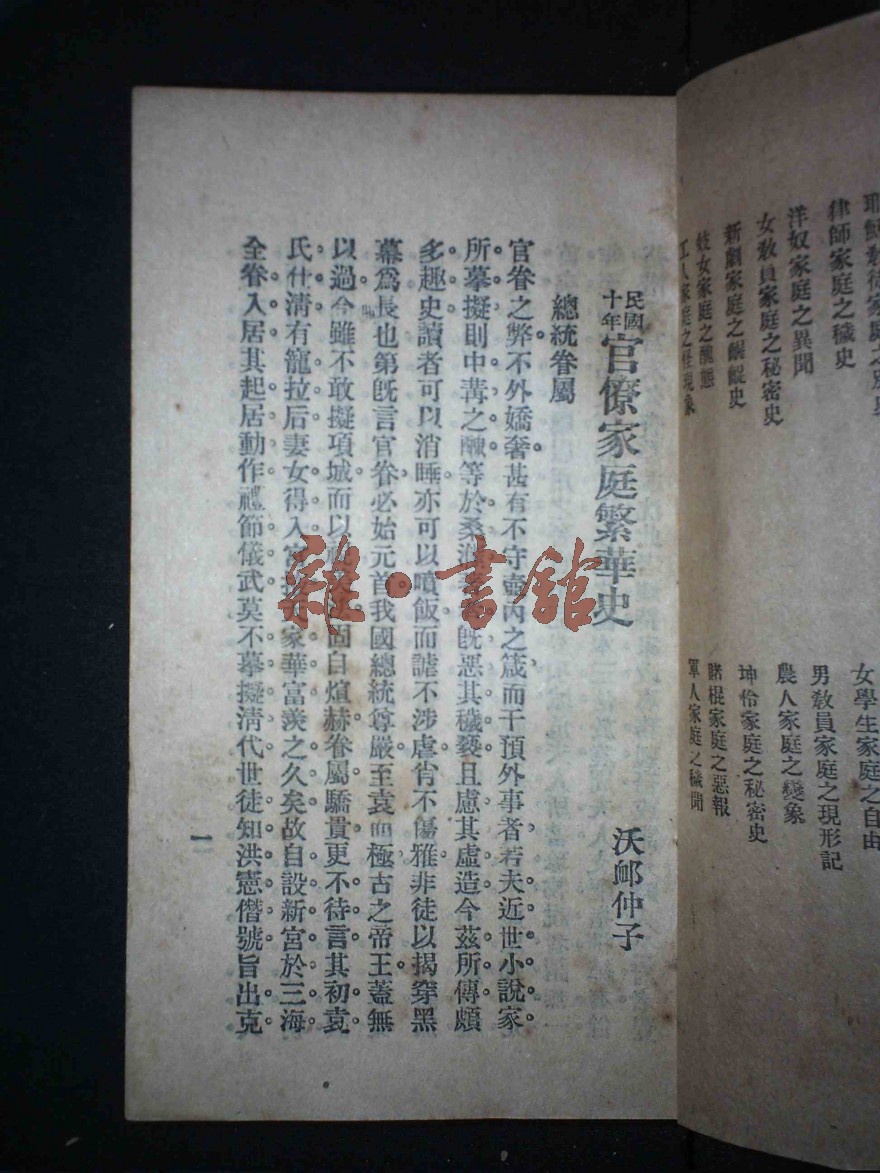 耶穌教徒家庭之別史
律師家庭之穢史
洋奴家庭之異聞
女教員家庭之秘密史
新劇家庭之齷齪史
妓女家庭之醜態
工人家庭之怪現象
女學生家庭之自由
男教員家庭之現形記
農人家庭之變象
坤伶家庭之秘密史
賭棍家庭之惡報
軍人家庭之穢聞
民國十年官僚家庭繁華史
沃邱仲子
總統眷屬
官眷之弊。不外嬌奢。甚有不守壼內之箴。而干預外事者。若夫近世小說家。
所摹擬。則中冓之醜。等於桑濮。既惡其穢褻。且慮其虛造。今茲所傳。頗
多趣史。讀者可以消睡。亦可以噴飯。而謔不涉虐。肯不傷雅。非徒以揭穿黑
幕爲長也。第既言官眷。必始元首。我國總統尊嚴。至袁而極。古之帝王。蓋無
以過。今雖不敢擬項城。而以視固自煊赫。眷屬驕貴。更不待言。其初袁
氏仕清有寵。拉后妻女得入宮家華富。羨之久矣。故自設新宮於三海。
全眷入居。其起居動作。禮節儀式。莫不摹擬清代。世徒知洪憲僭號。旨出克
一
雜·書館